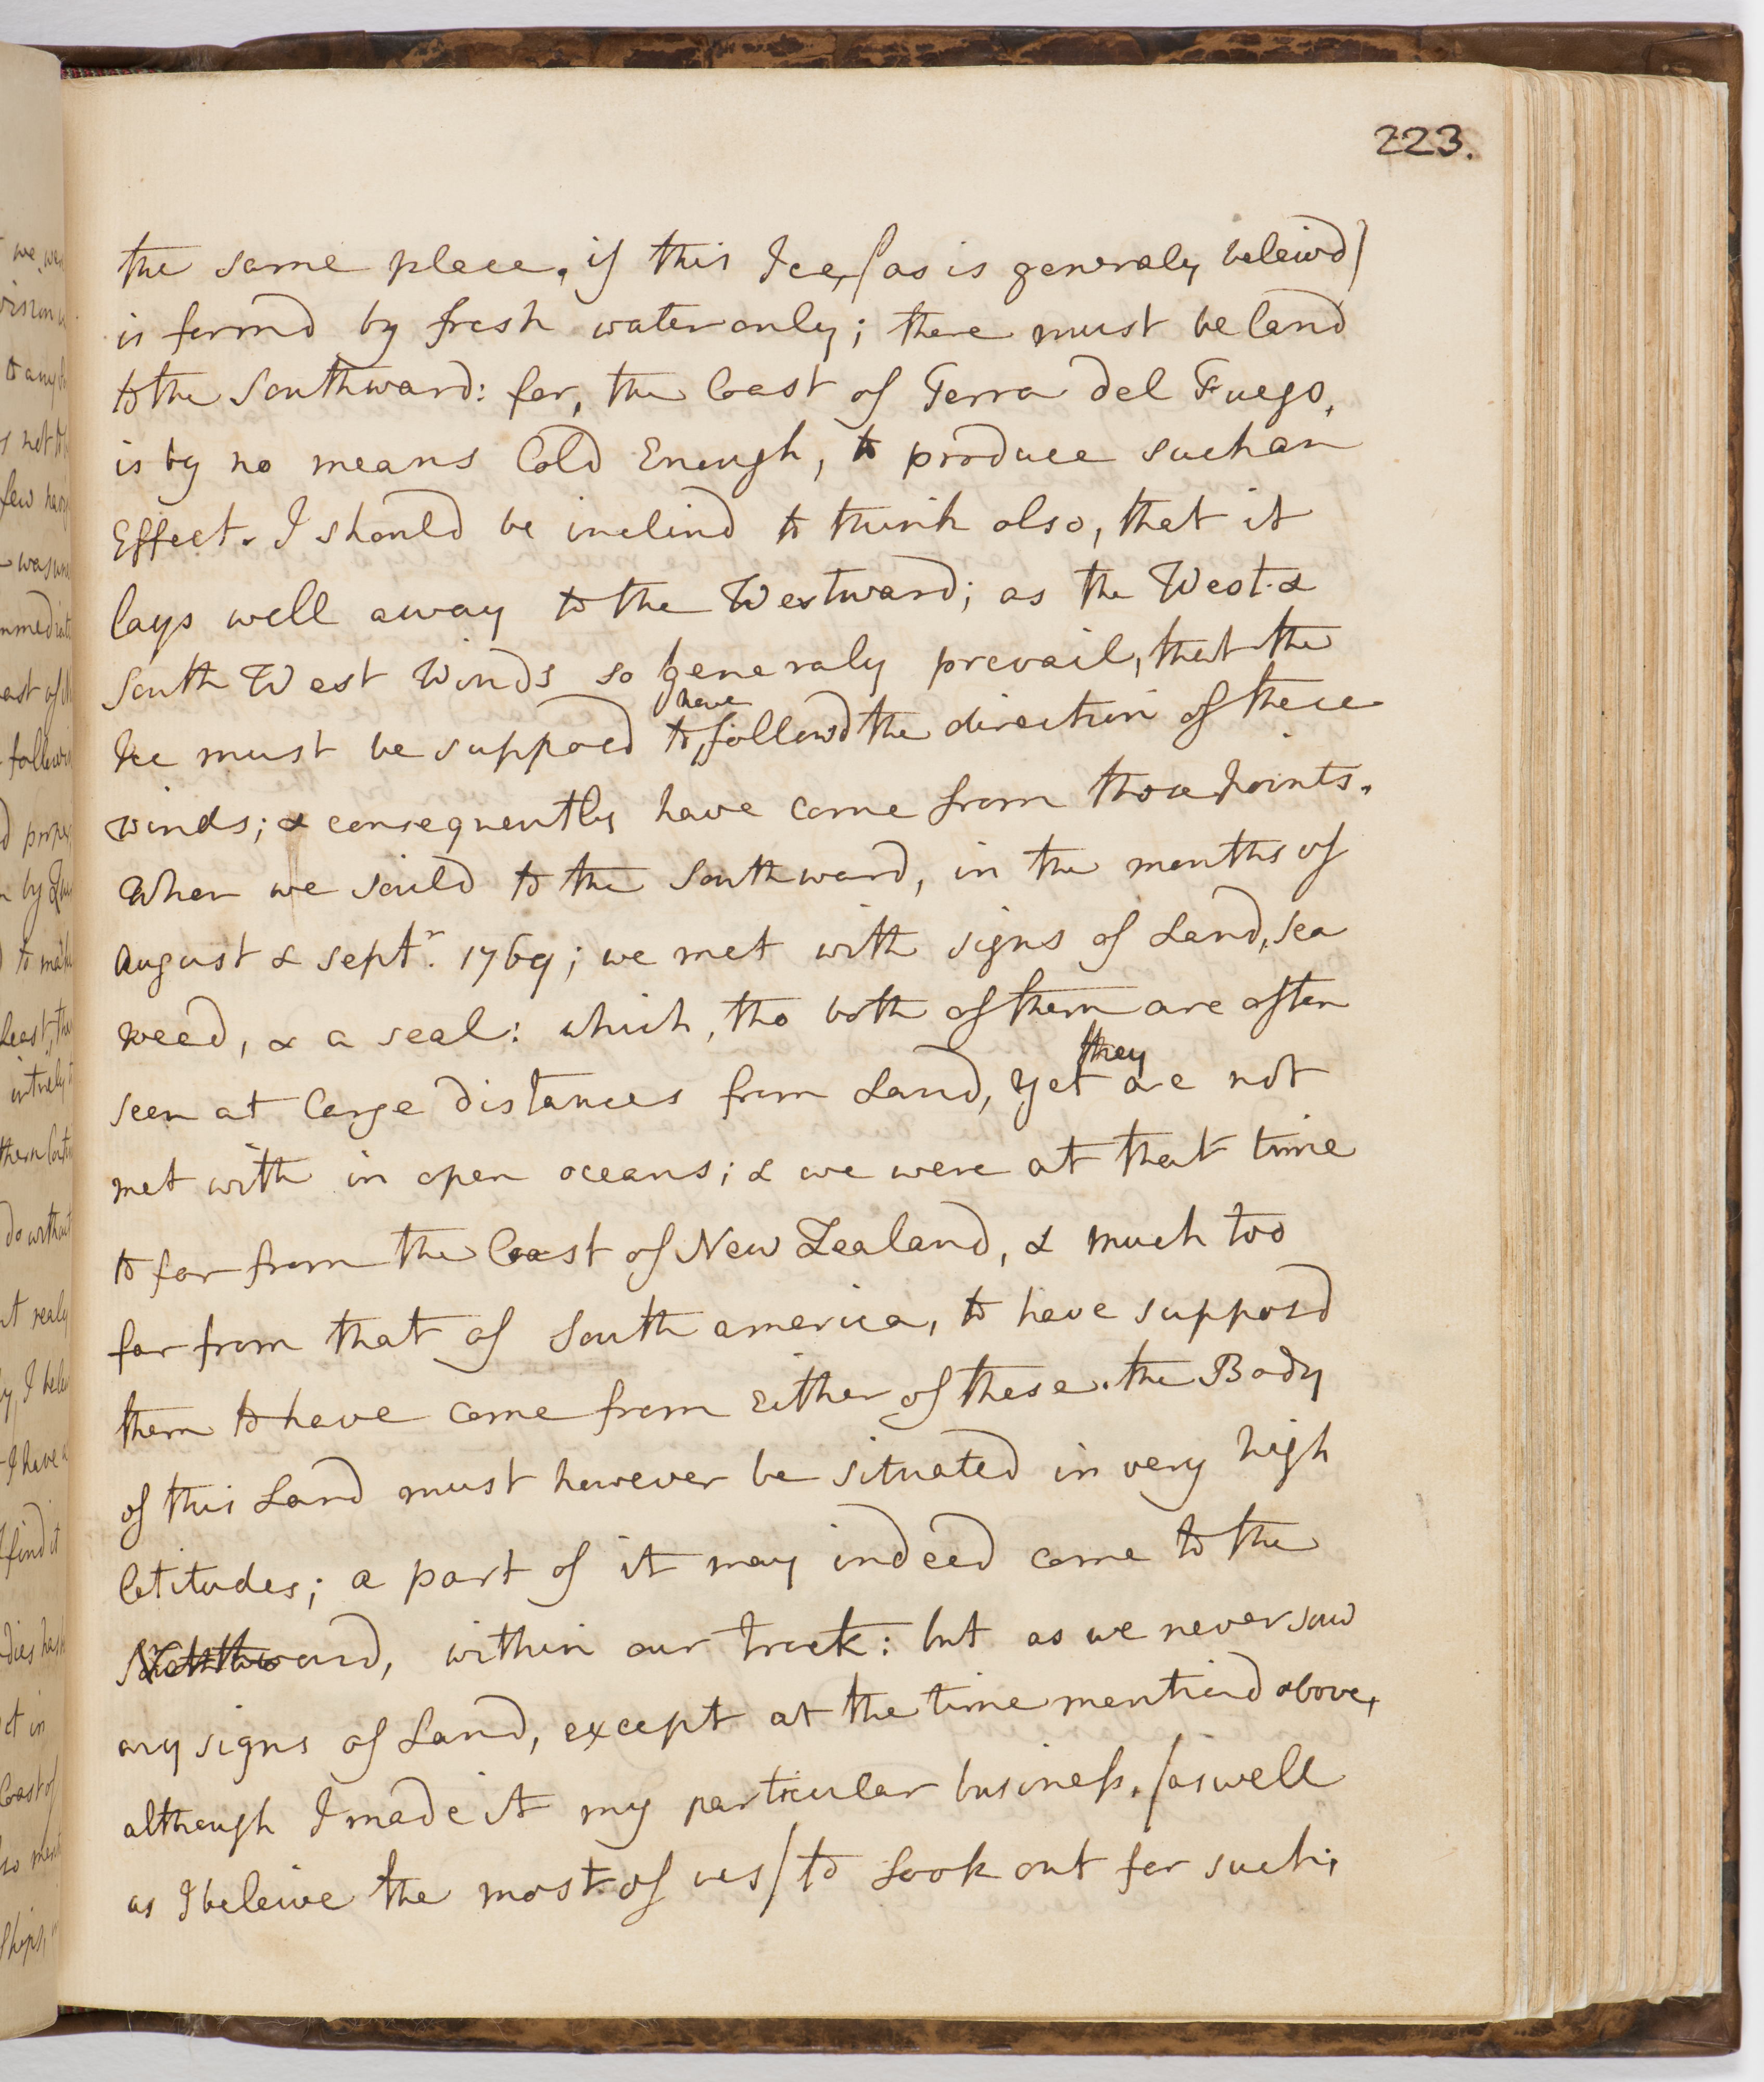 223.
the same place. if this Ice, (as is generaly beleivd)
is formd by fresh water only; there must be land
to the Southward: for, the Coast of Terra del Fuego,
is by no means Cold Enough, to produce such an
Effect. I should be inclind to think also, that it
lays well away to the Westward; as the West &
South West Winds so generaly prevail, that the
have
Ice must be supposed to followd the direction of these
winds; & consequently have come from those points.
When we saild to the Southward, in the months of
august & septr. 1769; we met with signs of Land, sea
weed, & a seal: which, tho both of them are often
they
seen at large distances from Land, yet are not
met with in open oceans; & we were at that time
to far from the Coast of New Zealand, & much too
far from that of South america, to have supposd
them to have come from Either of these. the Body
of this Land must however be situated in very high
latitudes; a part of it may indeed come to the
Northward, within our track: but as we never saw
any signs of Land, except at the time mentiond above,
although I made it my particular business, (as well
as I beleive the most of us) to Look out for such;